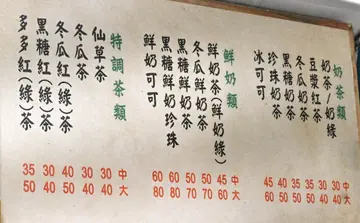 奶茶類
奶茶/奶綠
豆漿紅茶
冬瓜奶茶
珍珠奶茶
冰可可
45 40 35 30 30 中
60 50 50 40 40 大
鮮奶類
鮮奶茶(鮮奶綠)
冬瓜鮮奶
黑糖鮮奶
黑糖鮮奶珍珠
鮮奶可可
60 60 50 50 45 中
80 80 70 70 60 大
特調茶類
仙草茶
冬瓜茶
冬瓜紅(綠)茶
黑糖紅(綠)茶
多多紅(綠)茶
35 30 40 30 30 中
50 40 50 40 40 大